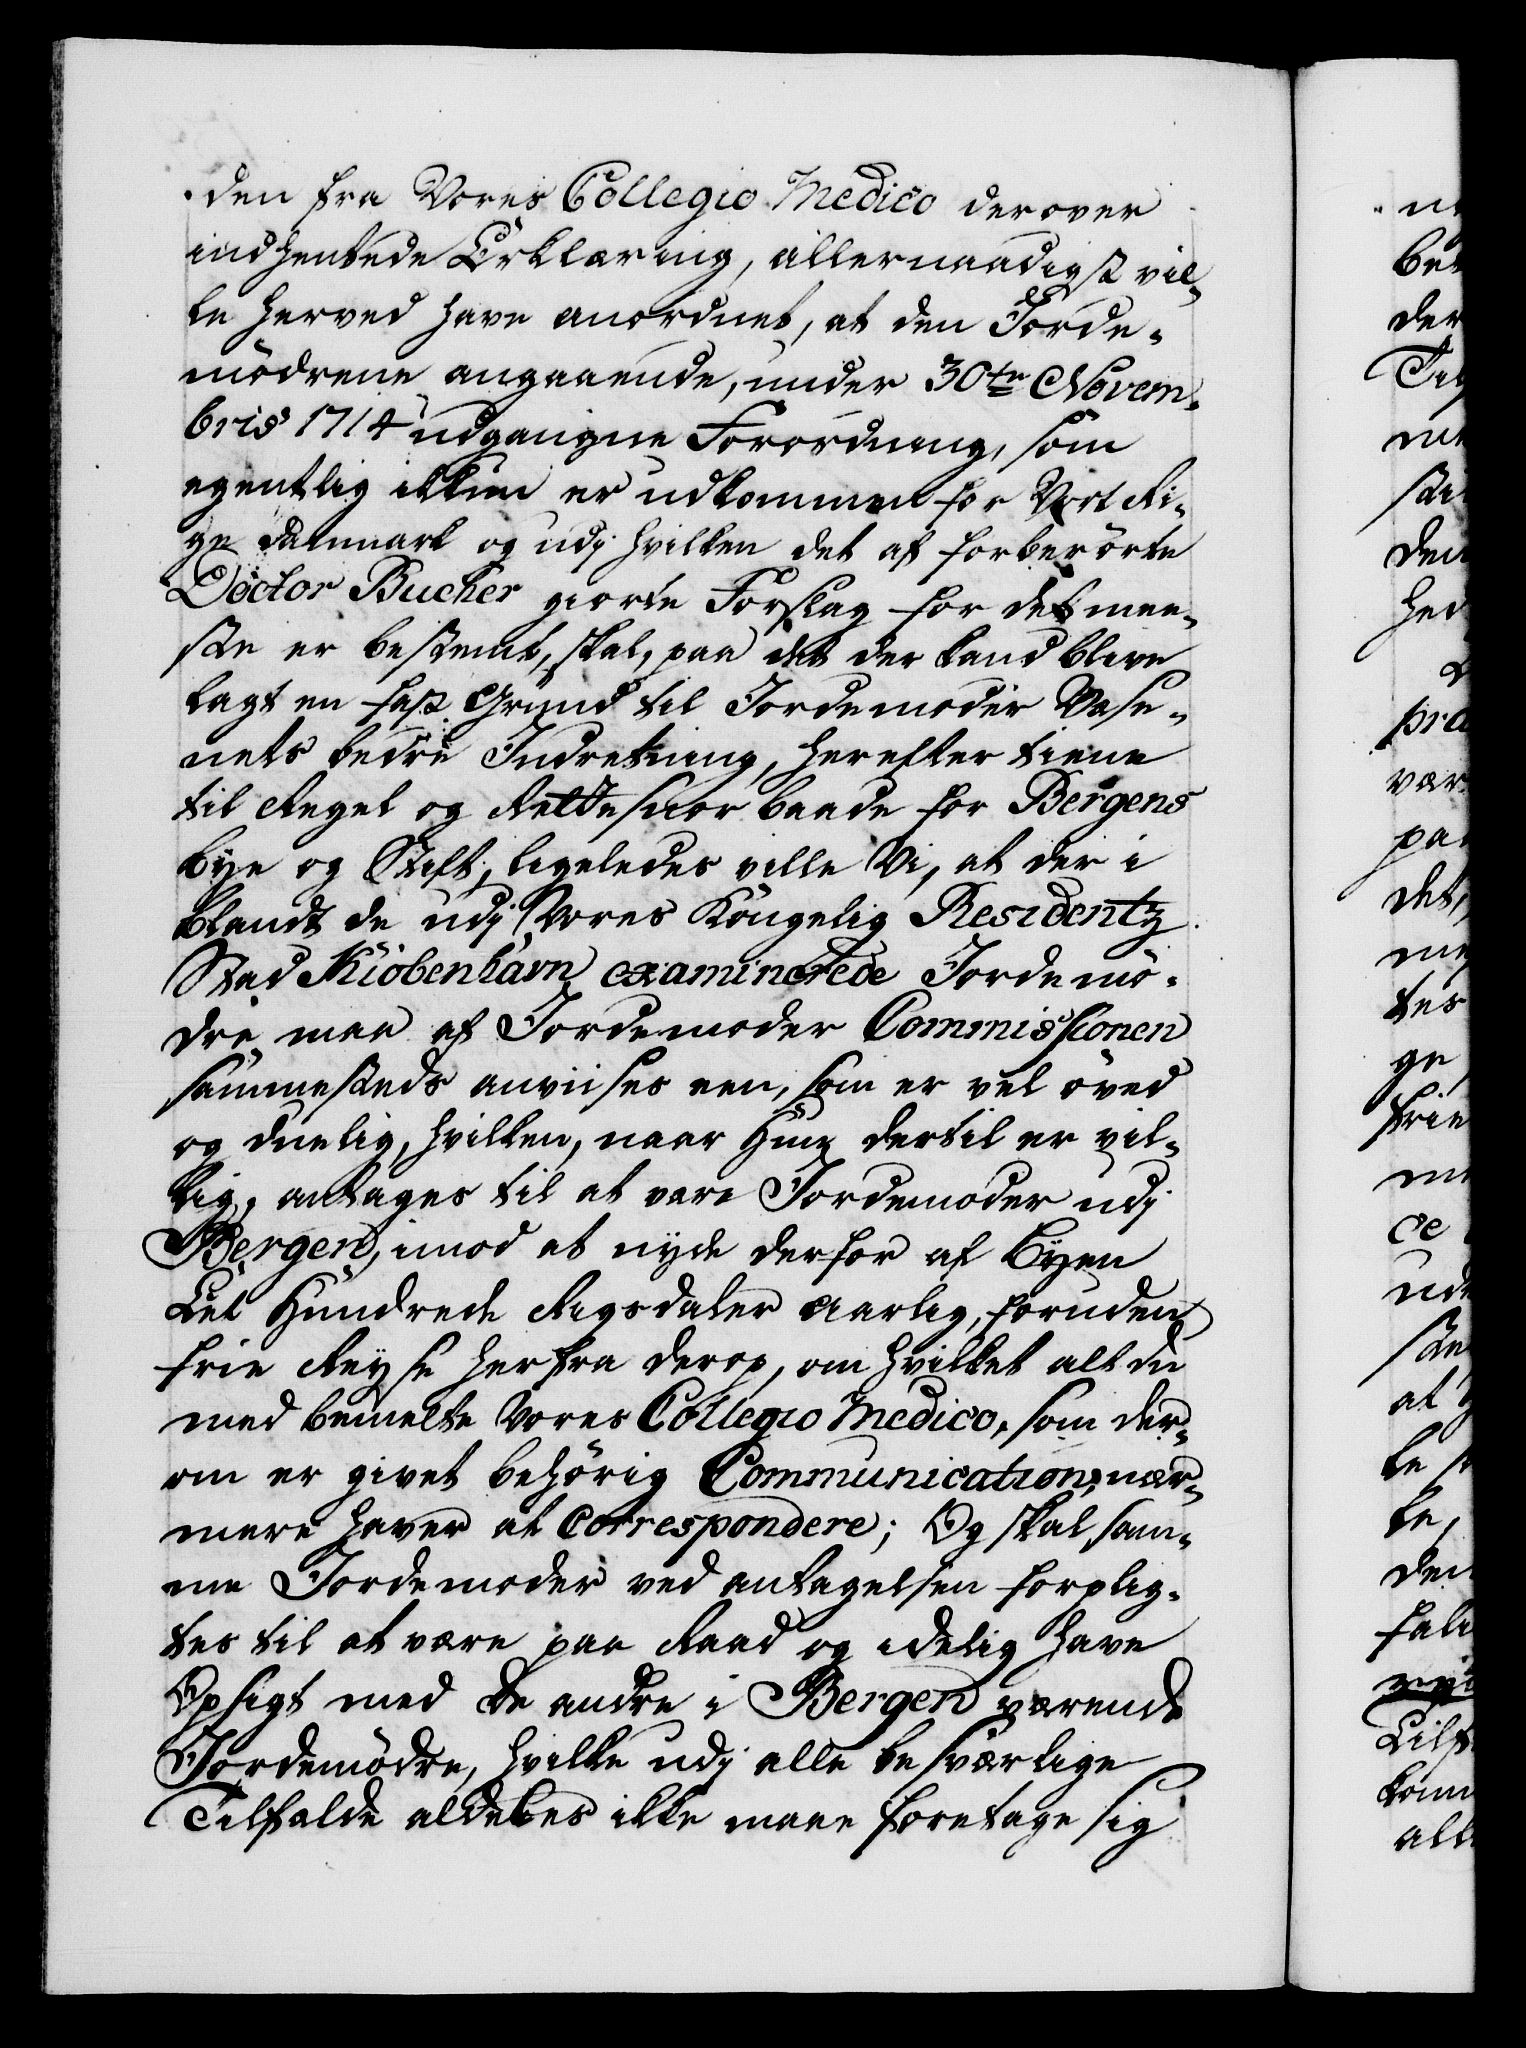 den fra Vores Collegio Medico derover
indhentede Erklæring, allernaadigst vil-
le herved have anordnet, at den Jorde-
mödrene angaaende, under 30te Novem-
bris 1714 udgangne Forordning, som
egentlig ikkun er udkommen for Vort Ri-
ge Danmark og udj hvilken det af forberörte
Doctor Bucher giorte Forslag for det mee-
ste er bestemt, skal, paa det der kand blive
lagt en fast Grund til Jordemoder Væse-
nets bedre Indretning, herefter tiene
til Regel og Rettesnor baade for Bergens
Bye og Stift; ligeledes ville Vi, at der i
blandt de udj Vores Kongelig Residentz
Stad Kiöbenhavn examinerede Jordemö-
dre maa af Jordemoder Commissionen
sammesteds anviises een, som er vel öved
og duelig, hvilken, naar Hun dertil er vil-
lig, antages til at være Jordemoder udj
Bergen, imod at nyde derfor af Byen
Eet Hundrede Rigsdaler aarlig, foruden
frie Reyse herfra derop, om hvilket alt du
med bemelte Vores Collegio Medico, som der-
om er givet behörig Communication, nær-
mere haver at correspondere; Og skal sam-
me Jordemoder ved antagelsen forplig-
tes til at være paa Raad og idelig have
Opsigt med de andre i Bergen værende
Jordemödre, hvilke udj alle besværlige
Tilfælde aldeles ikke maae foretage sig